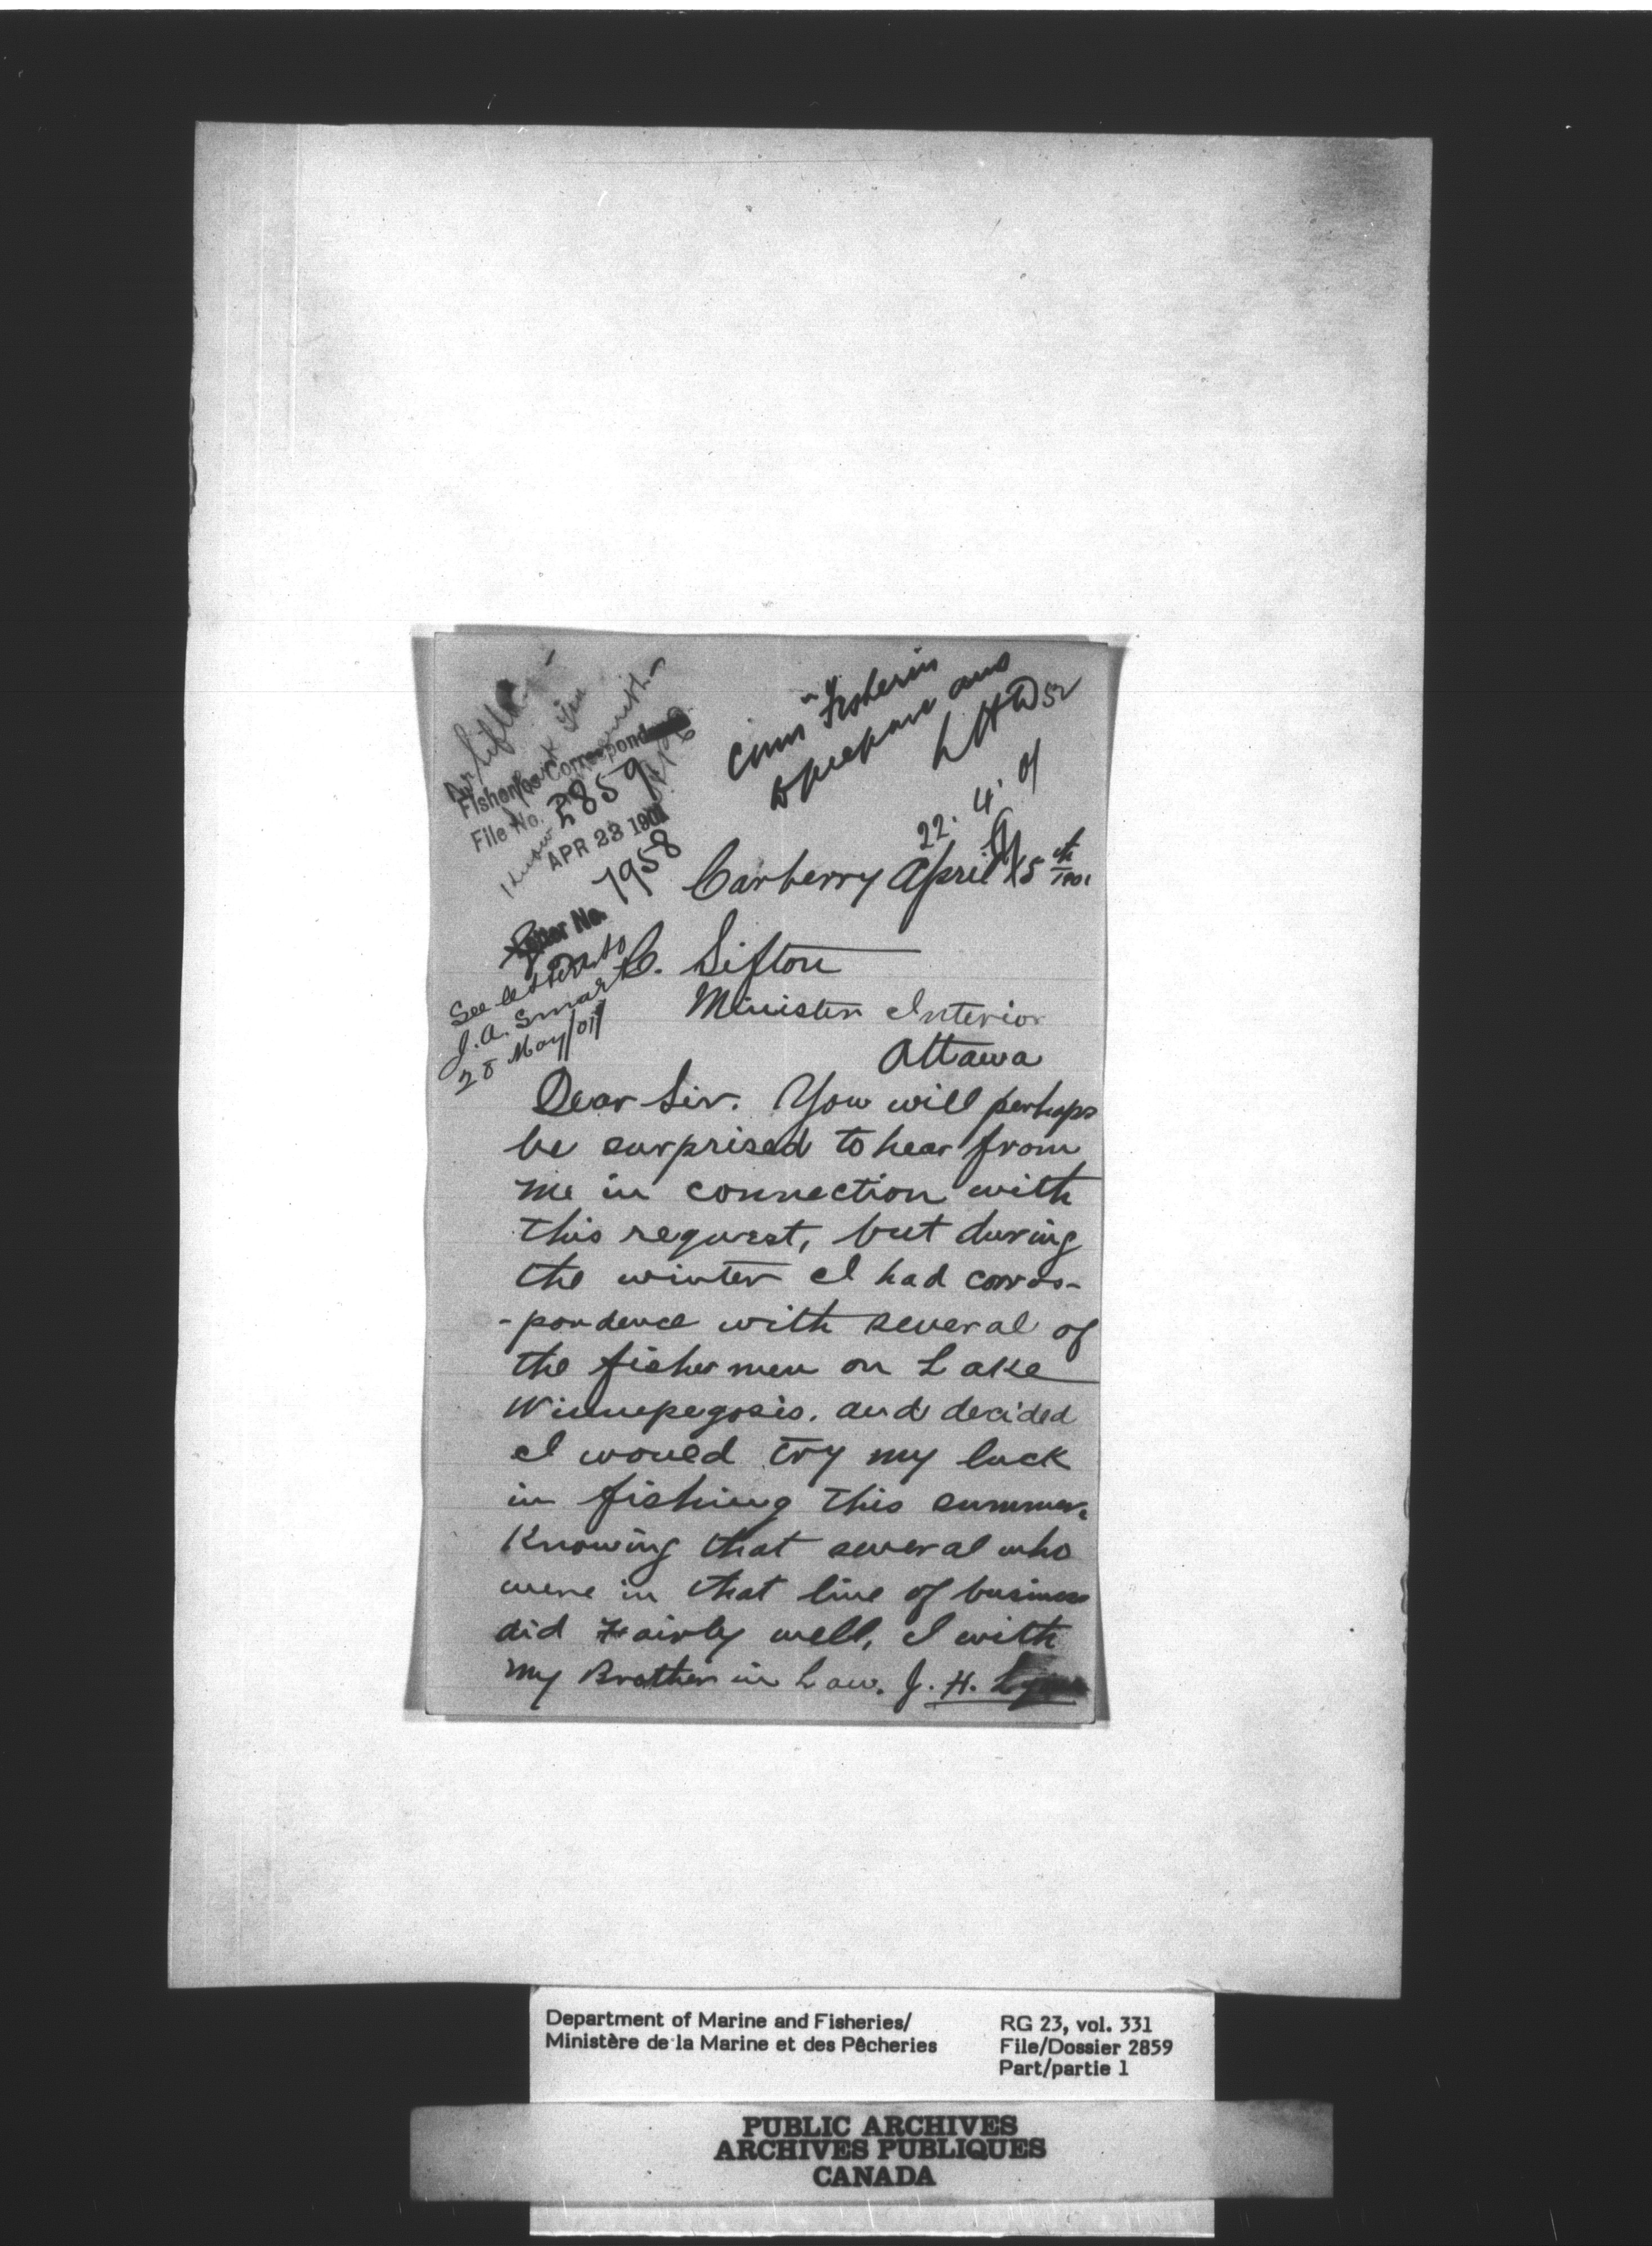 Fisheries Correspondence
File No. 2859
APR 23 1901
1958
Letter No.
See letter to
J. A. Smart
28 May/01
Fisheries
to prepare ans
22. 4. 01
Carberry April 15th 1901
C. Sifton
Minister Interior
Ottawa
Dear Sir. You will perhaps
be surprised to hear from
me in connection with
this request, but during
the winter I had corres-
-pondence with several of
the fishermen on Lake
Winnepegosis. and decided
I would try my luck
in fishing this summer.
Knowing that several who
were in that line of business
did Fairly well, I with
my Brother in Law. J. H.
Department of Marine and Fisheries/
Ministère de la Marine et des Pêcheries
RG 23, vol. 331
File/Dossier 2859
Part/partie 1
PUBLIC ARCHIVES
ARCHIVES PUBLIQUES
CANADA